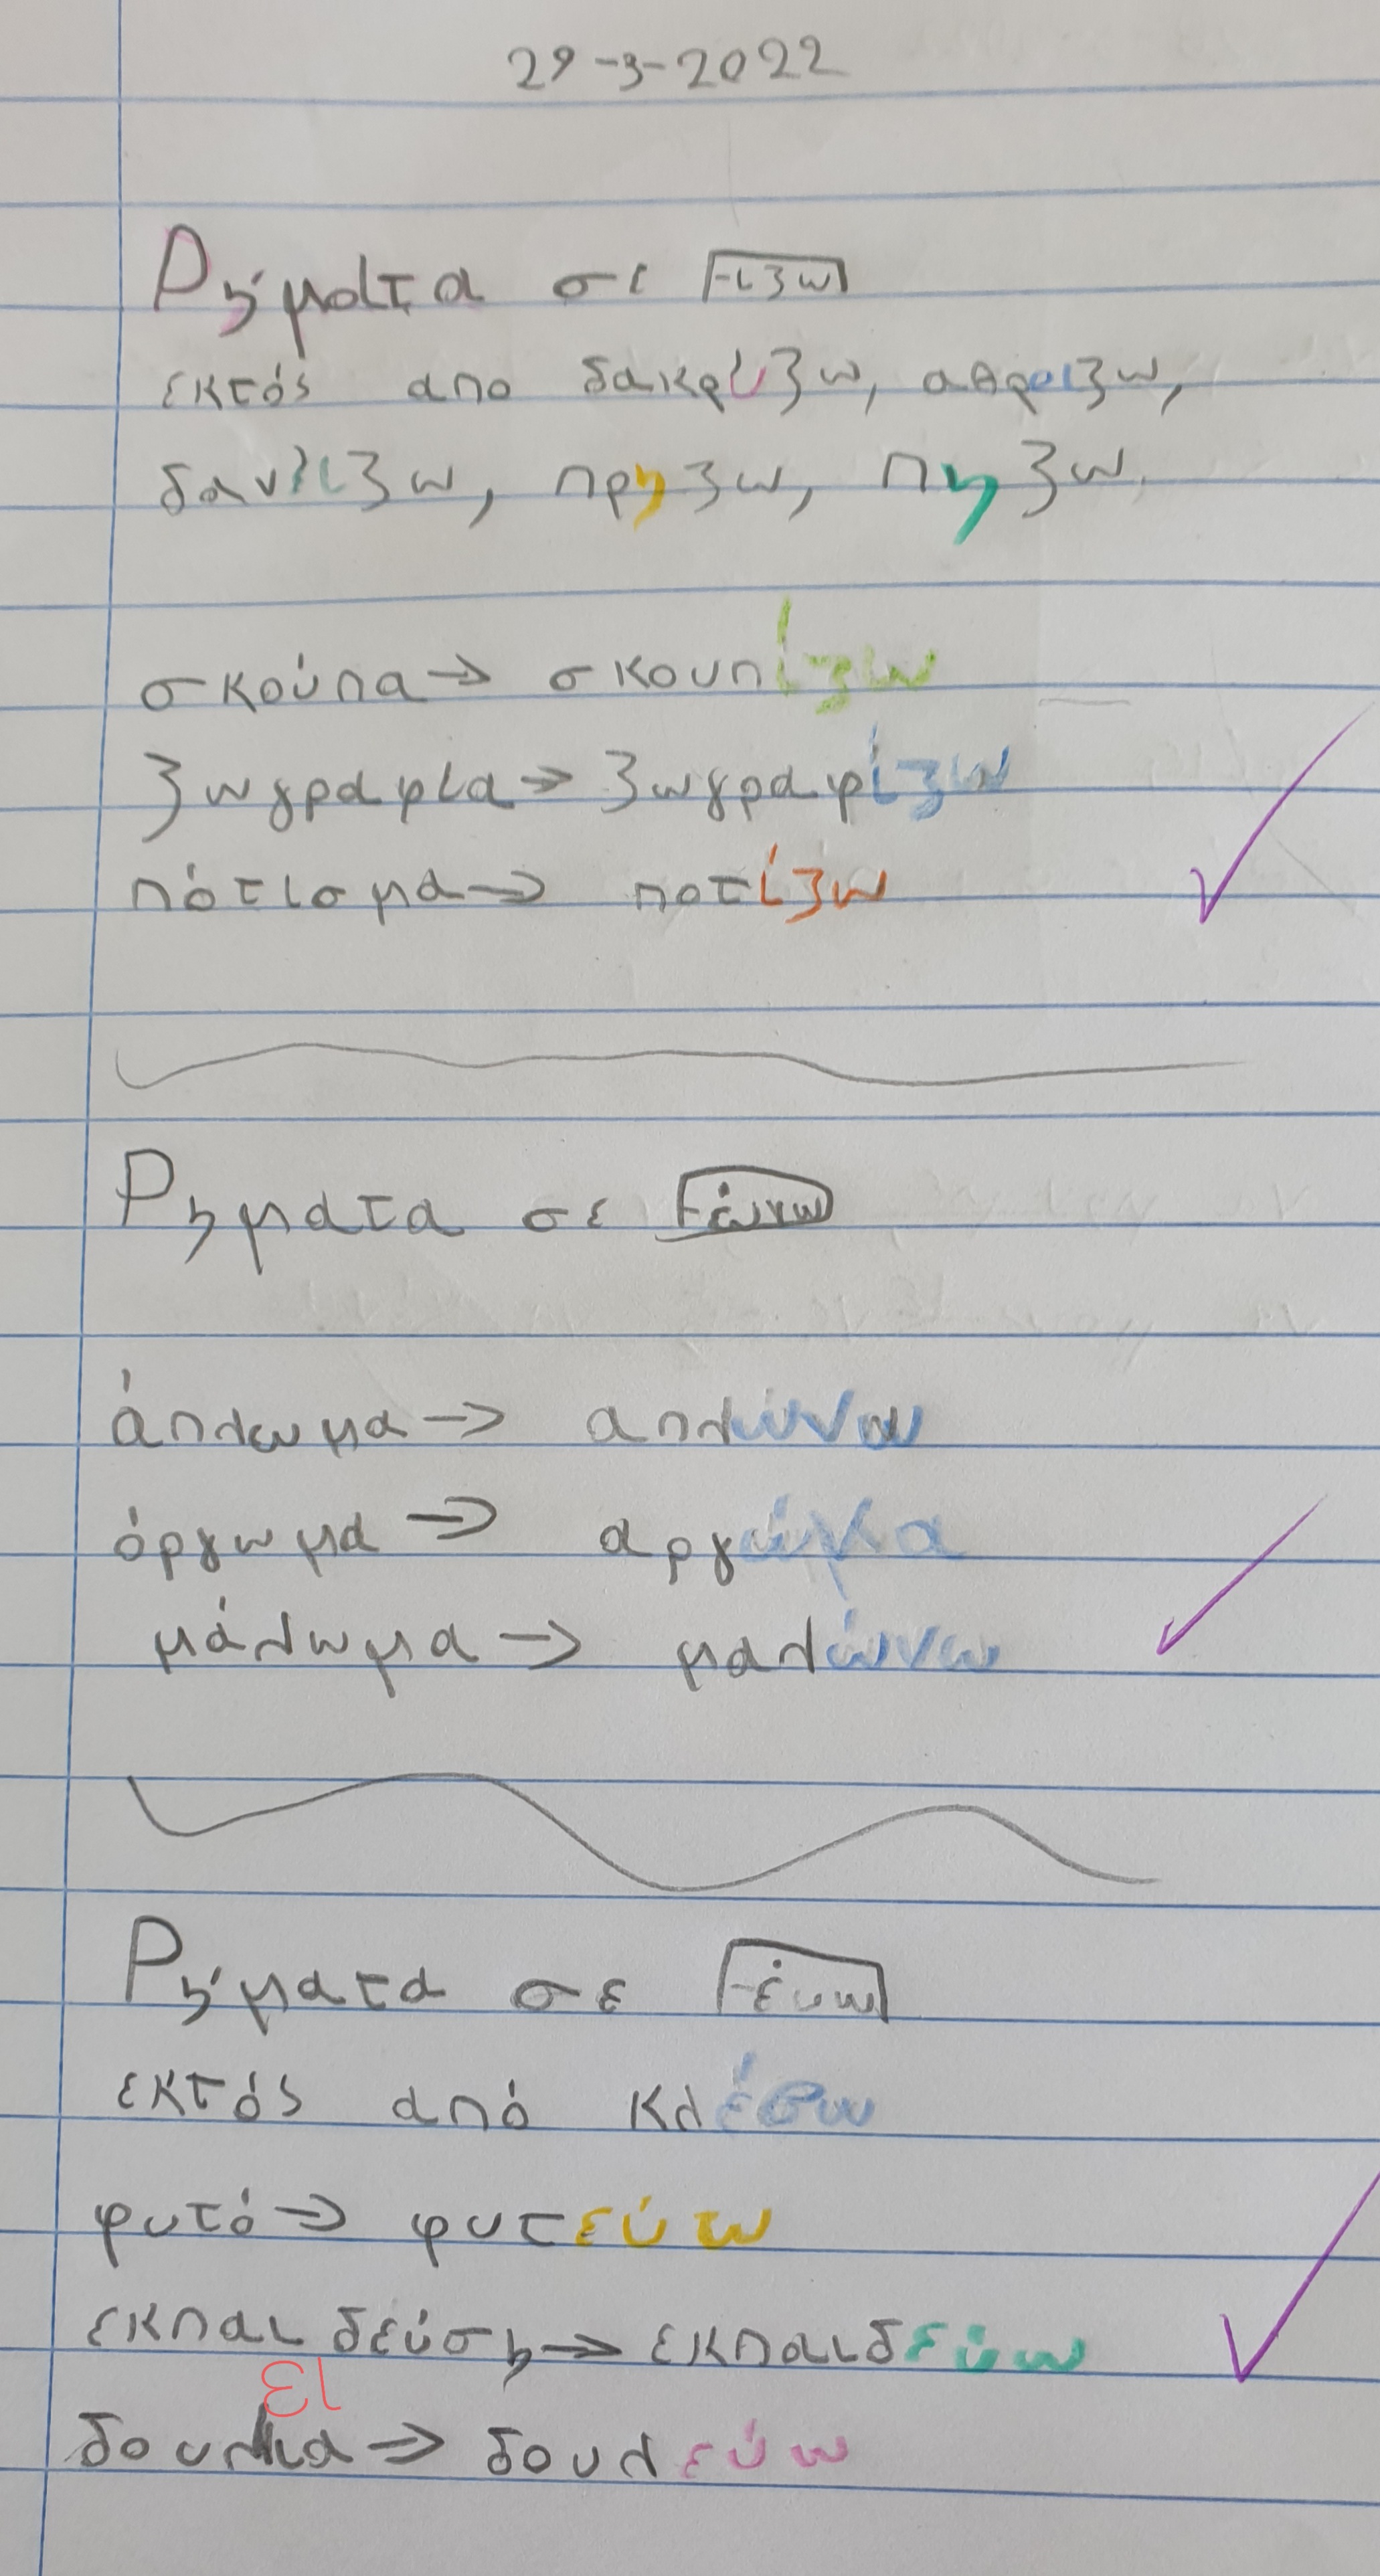 29-3-2022
Ρήματα σε -ιζω
εκτός απο δακρύζω, αθροιζω,
δανείζω, πρηζω, πηζω.
σκούπα → σκουπίζω
ζωγραφια → ζωγραφίζω
πότισμα → ποτίζω
Ρηματα σε -ώνω
άπλωμα → απλώνω
όργωμα → αργώνα
μάλωμα → μαλώνω
Ρήματα σε -εύω
εκτός από
φυτό → φυτεύω
εκπαιδεύση → εκπαιδεύω
ει
δουλια → δουλεύω